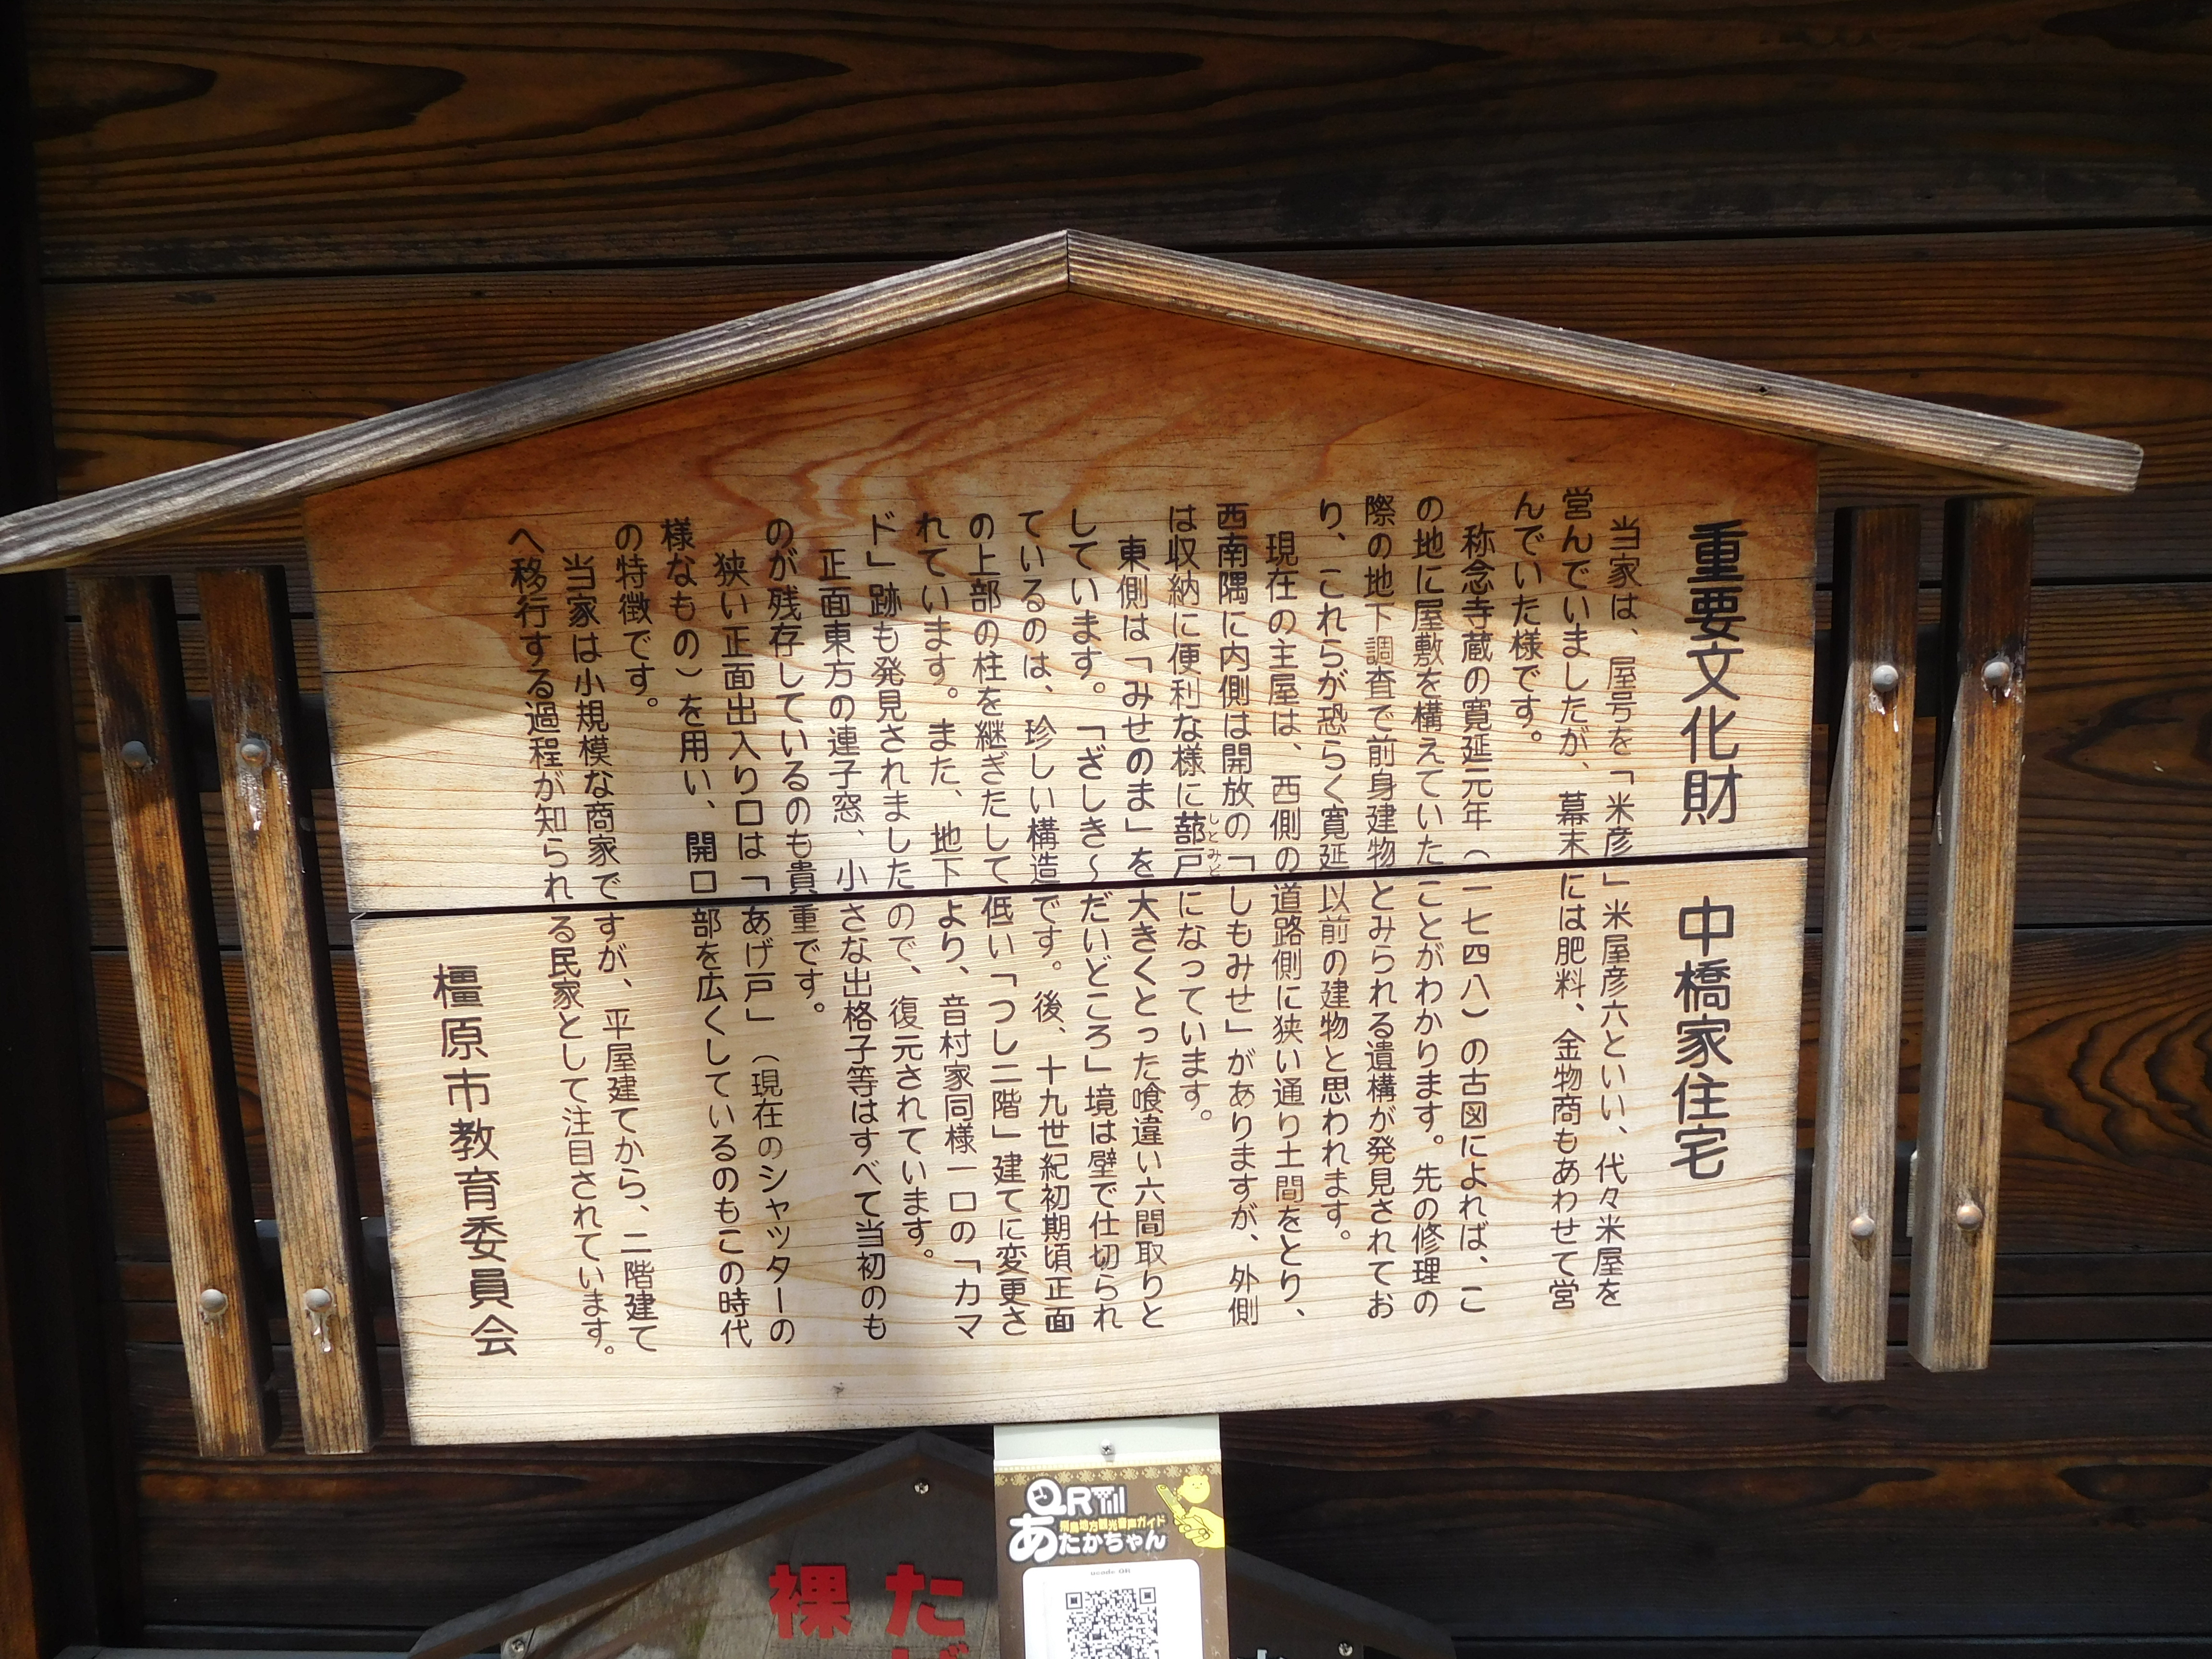 重要文化財　中橋家住宅
当家は、屋号を「米彦」米屋彦六といい、代々米屋を
営んでいましたが、幕末には肥料、金物商もあわせて営
んでいた様です。
称念寺蔵の寛延元年（一七四八）の古図によれば、こ
の地に屋敷を構えていたことがわかります。先の修理の
際の地下調査で前身建物とみられる遺構が発見されてお
り、これらが恐らく寛延以前の建物と思われます。
現在の主屋は、西側の道路側に狭い通り土間をとり、
西南隅に内側は開放の「しもみせ」がありますが、外側
は収納に便利な様に蔀戸になっています。
しとみど
東側は「みせのま」を大きくとった喰違い六間取りと
しています。「ざしき～だいどころ」境は壁で仕切られ
ているのは、珍しい構造です。後、十九世紀初期頃正面
の上部の柱を継ぎたして低い「つし二階」建てに変更さ
れています。また、地下より、音村家同様一口の「カマ
ド」跡も発見されましたので、復元されています。
正面東方の連子窓、小さな出格子等はすべて当初のも
のが残存しているのも貴重です。
狭い正面出入り口は「あげ戸」（現在のシャッターの
様なもの）を用い、開口部を広くしているのもこの時代
の特徴です。
当家は小規模な商家ですが、平屋建てから、二階建て
へ移行する過程が知られる民家として注目されています。
橿原市教育委員会
QR
飛鳥地方観光音声ガイド
あたかちゃん
ucode QR
た
裸